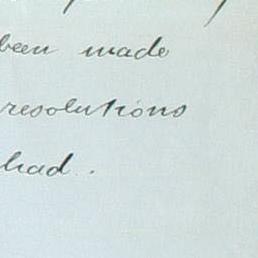 been made
resolutions
had.